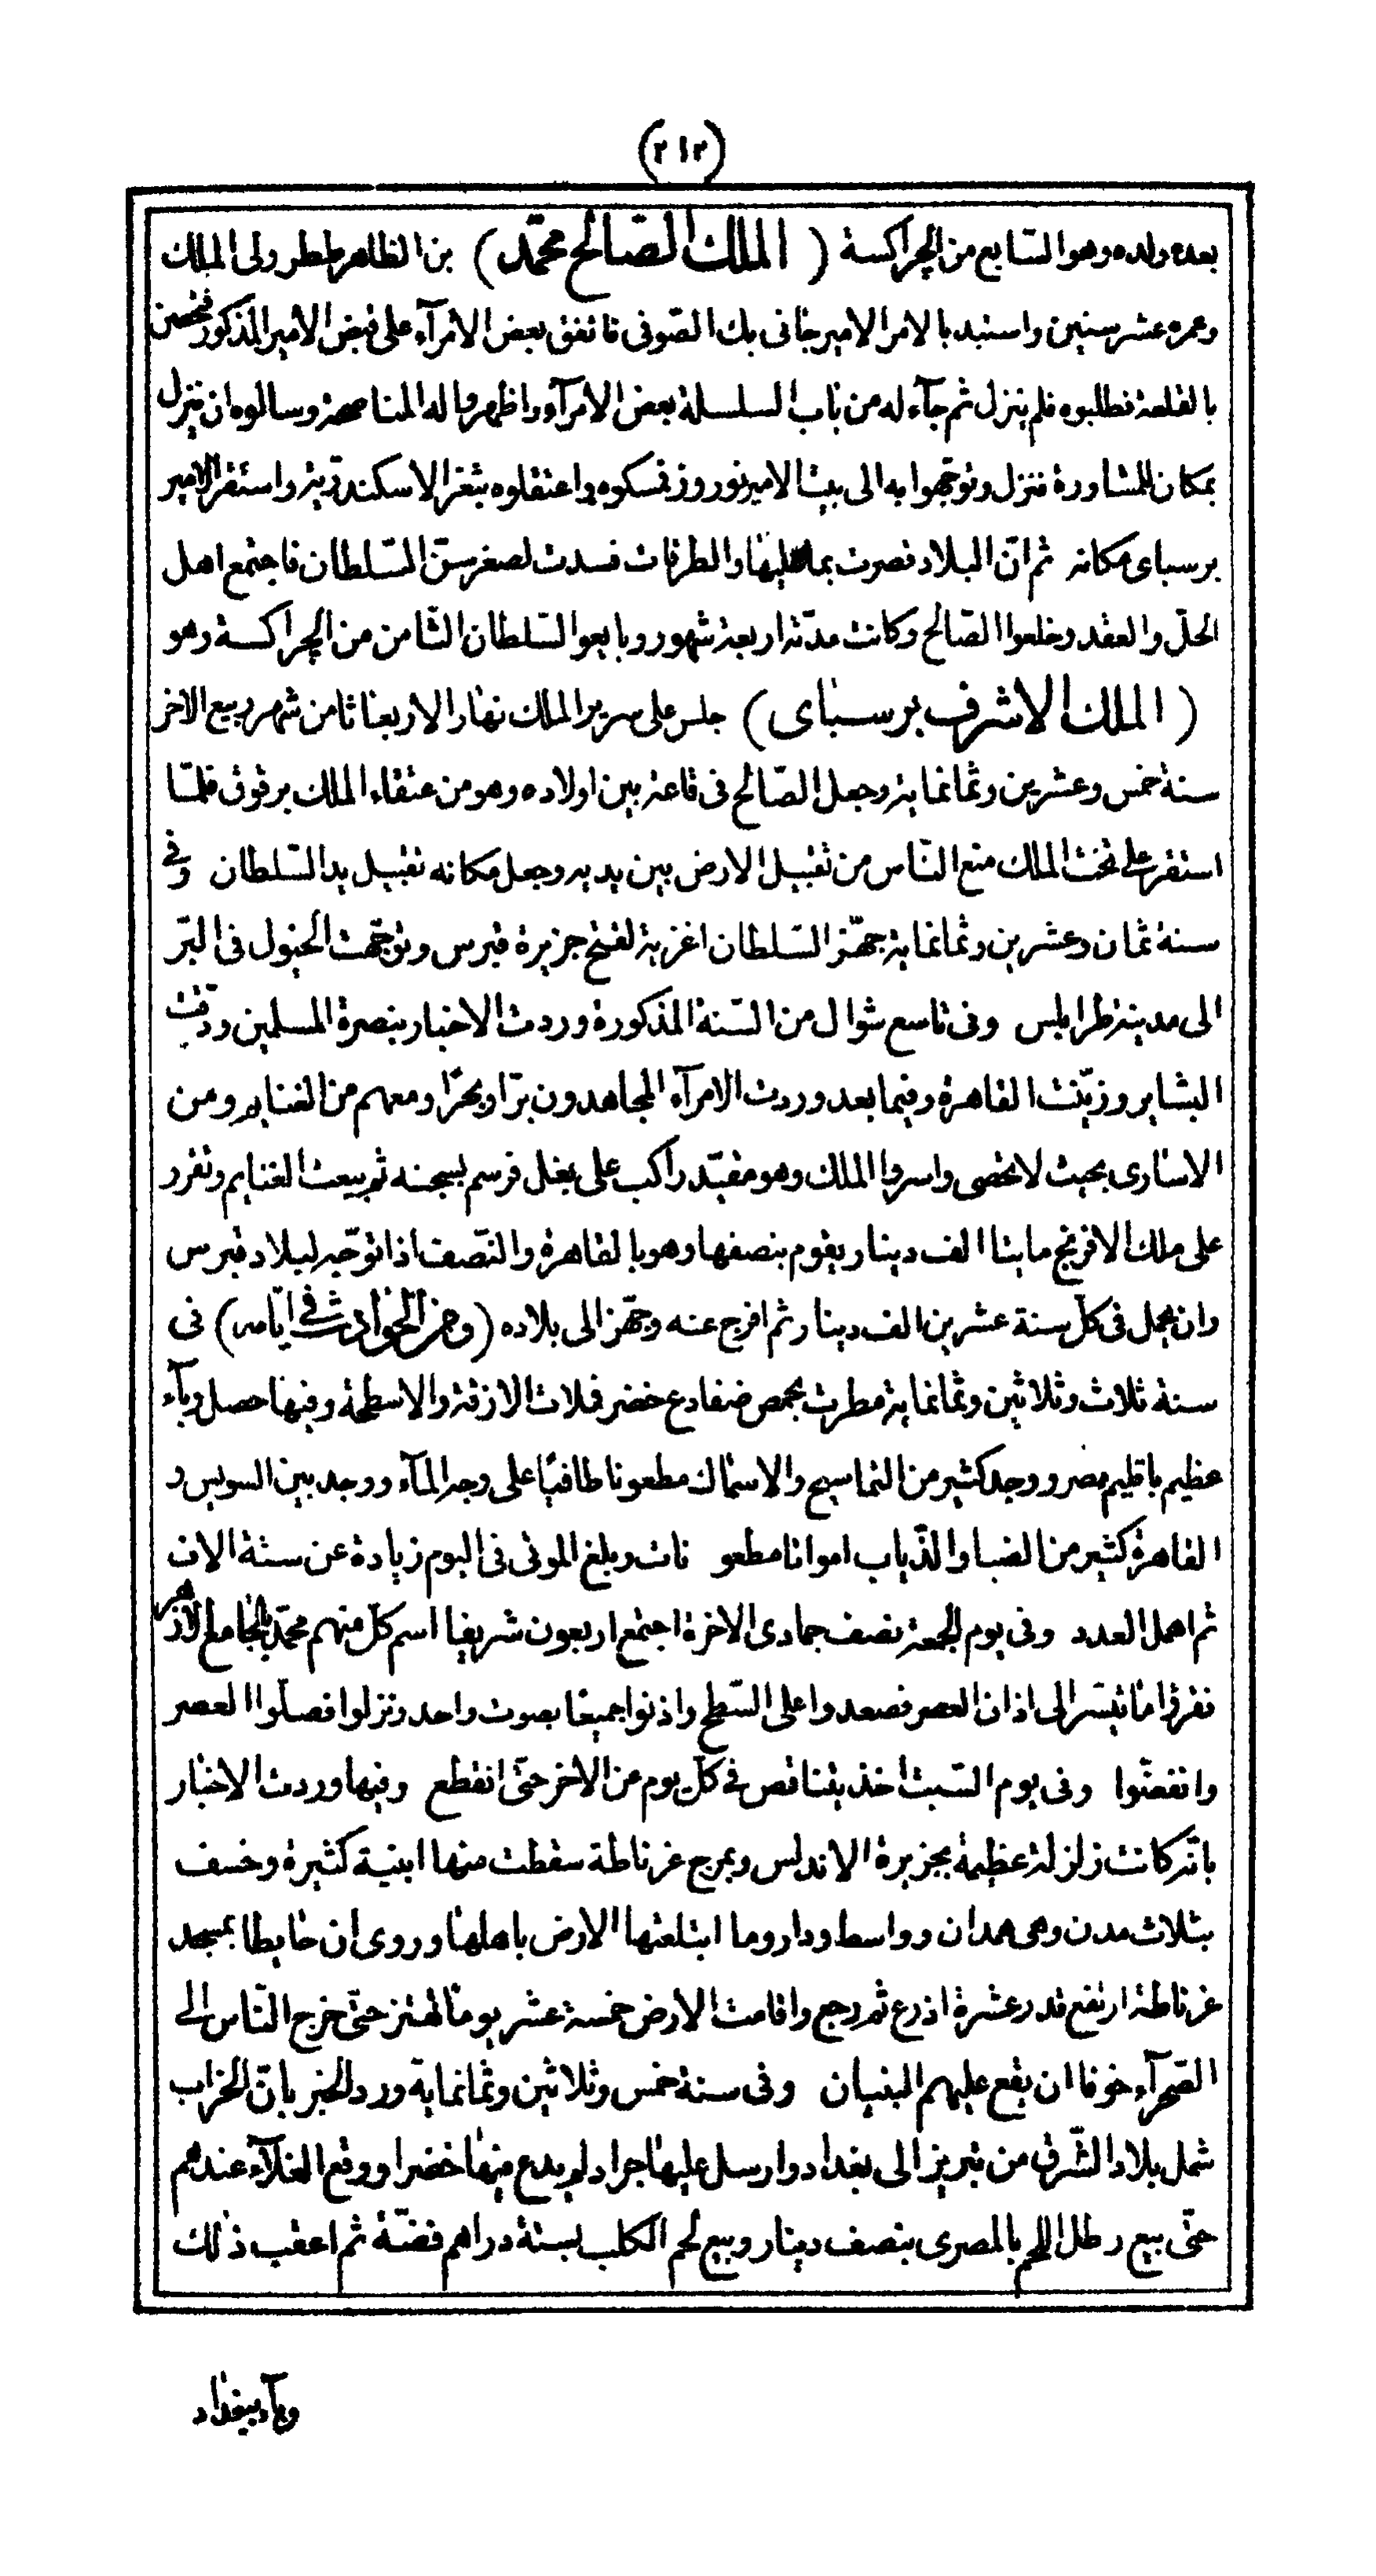 (٢١٢)
بعده ولده وهو السّابع من الچراكسة ( الملك الصّالح محمّد ) بن الظاهر ططر ولى الملك
وعمره عشر سنين واستبد بالامر الامير جانى بك الصّوفى فاتفق بعض الامرآء على قبض الامير المذكور فتحصن
بالقلعة فطلبوه فلم ينزل ثم جآء له من باب السلسلة بعض الامرآء واظهروا له المناصحة وسالوه ان ينزل
بمكان للمشاورة فنزل وتوجّهوا به الى بيت الامير نوروز فمسكوه واعتقلوه بثغر الاسكندريّة واستقر الامير
برسباى مكانه ثم انّ البلاد قصرت بما عليها والطرقات فسدت لصغر سنّ السّلطان فاجتمع اهل
الحلّ والعقد وخلعوا الصّالح وكانت مدّته اربعة شهور وبايعوا السّلطان الثّامن من الچراكسة وهو
( الملك الاشرف برسباى ) جلس على سرير الملك نهار الاربعا ثامن شهر ربيع الاخر
سنة خمس وعشرين وثمانماية وجعل الصّالح فى قاعة بين اولاده وهو من عتقاء الملك برقوق فلمّا
استقر على تخت الملك منع النّاس من تقبيل الارض بين يديه وجعل مكانه تقبيل يد السّلطان وفى
سنة ثمان وعشرين وثمانماية جهّز السّلطان اغزية لفتح جزيرة قبرس وتوجّهت الخيول فى البّر
الى مدينة طرابلس وفى تاسع شوال من السّنة المذكورة وردت الاخبار بنصرة المسلمين ودقّت
البشاير وزيّنت القاهرة وفيما بعد وردت الامرآء المجاهدون برّا وبحرًا ومعهم من الغنايم ومن
الاسارى بحيث لا تحصى واسروا الملك وهو مقيّد راكب على بغل فرسم بسجنه ثم بيعت الغنايم وتقرر
على ملك الافرنج مايتا الف دينار يقوم بنصفها وهو بالقاهرة والنّصف اذا توجّه لبلاد قبرس
وان يحمل فى كلّ سنة عشرين الف دينار ثم افرج عنه وجهّز الى بلاده (ومن الحوادث فى ايّامه) فى
سنة ثلاث وثلاثين وثمانماية مطرت بحمص ضفادع خضر فملات الازقة والاسطحة وفيها حصل وبآء
عظيم باقليم مصر ووجد كثير من التماسيح والاسماك مطعونا طافيًا على وجه المآء ووجد بين السويس و
القاهرة كثير من الضبا والذّياب امواتا مطعو نات وبلغ الموتى فى اليوم زيادة عن ستة الاف
ثم اهمل العدد وفى يوم الجمعة نصف جمادى الاخرة اجتمع اربعون شريفا اسم كلّ منهم محمّد بالجامع الازهر
فقرؤا ما تيسّر الى اذان العصر فصعدوا على السّطح واذنوا جميعًا بصوت واحد ونزلوا فصلّوا العصر
وانفضّوا وفى يوم السّبت اخذ يتناقص فى كلّ يوم عن الاخر حتّى انقطع وفيها وردت الاخبار
بانّه كانت زلزلة عظيمة بجزيرة الاندلس وبمرج غرناطة سقطت منها ابنية كثيرة وخسف
بثلاث مدن وهى همدان وواسط وداروما ابتلعتها الارض باهلها وروى ان حايطا بمسجد
غرناطة ارتفع قدر عشرة اذرع ثم رجع واقامت الارض خمسة عشر يومًا تهتز حتّى خرج النّاس الى
الصّحرآء خوفا ان يقع عليهم البنيان وفى سنة خمس وثلاثين وثمانماية ورد الخبر بانّ الخراب
شمل بلاد الشّرق من تبريز الى بغداد وارسل عليها جراد لم يدع منها خضرا ووقع الغلآء عندهم
حتّى بيع رطل اللحم بالمصرى بنصف دينار وبيع لحم الكلب بستة دراهم فضّة ثم اعقب ذلك
وبآء ببغداد